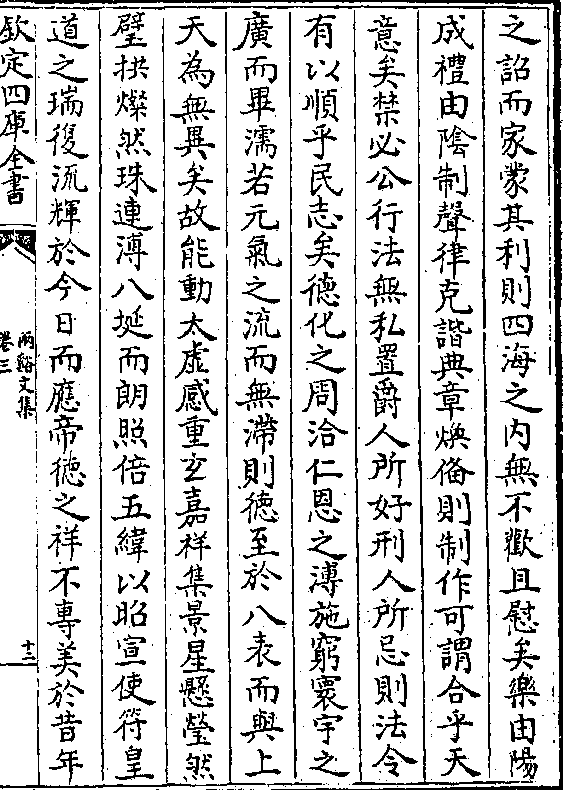 之詔而家蒙其利則四海之内無不歡且慰矣樂由陽
成禮由隂制聲律克諧典章煥俻則制作可謂合乎天
意矣禁必公行法無私置爵人所好刑人所忌則法令
有以順乎民志矣德化之周洽仁恩之溥施窮寰宇之
廣而畢濡若元氣之流而無滯則德至於八表而與上
天為無異矣故能動太虚感重玄嘉祥集景星懸瑩然
璧拱燦然珠連溥八埏而朗照倍五緯以昭宣使符皇
道之瑞復流輝於今日而應帝徳之祥不專美於昔年
欽定四庫全書
兩谿文集
卷三
十二